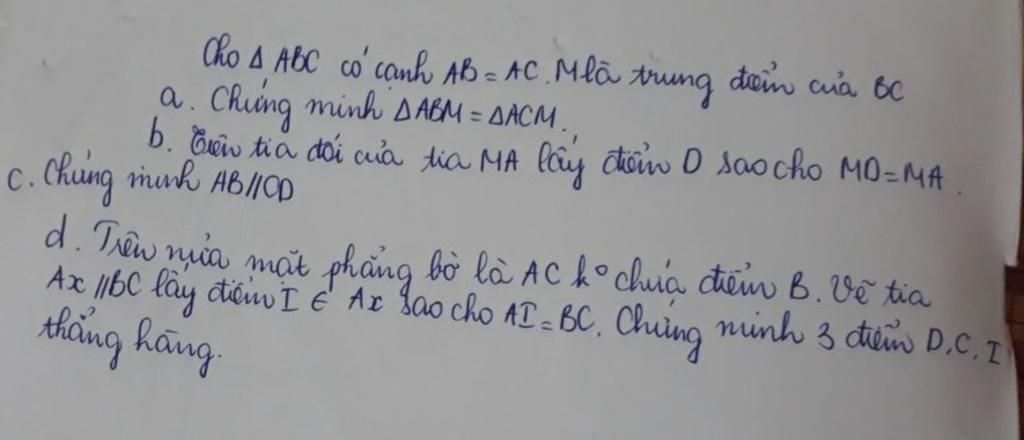 Cho Δ ABC có cạnh AB = AC. M là trung điểm của BC
a. Chứng minh ΔABM = ΔACM.
b. Trên tia đối của tia MA lấy điểm D sao cho MD = MA.
c. Chứng minh AB//CD
d. Trên nửa mặt phẳng bờ là AC k° chứa điểm B. Vẽ tia
Ax //BC lấy điểm I ∈ Ax sao cho AI = BC. Chứng minh 3 điểm D, C, I
thẳng hàng.